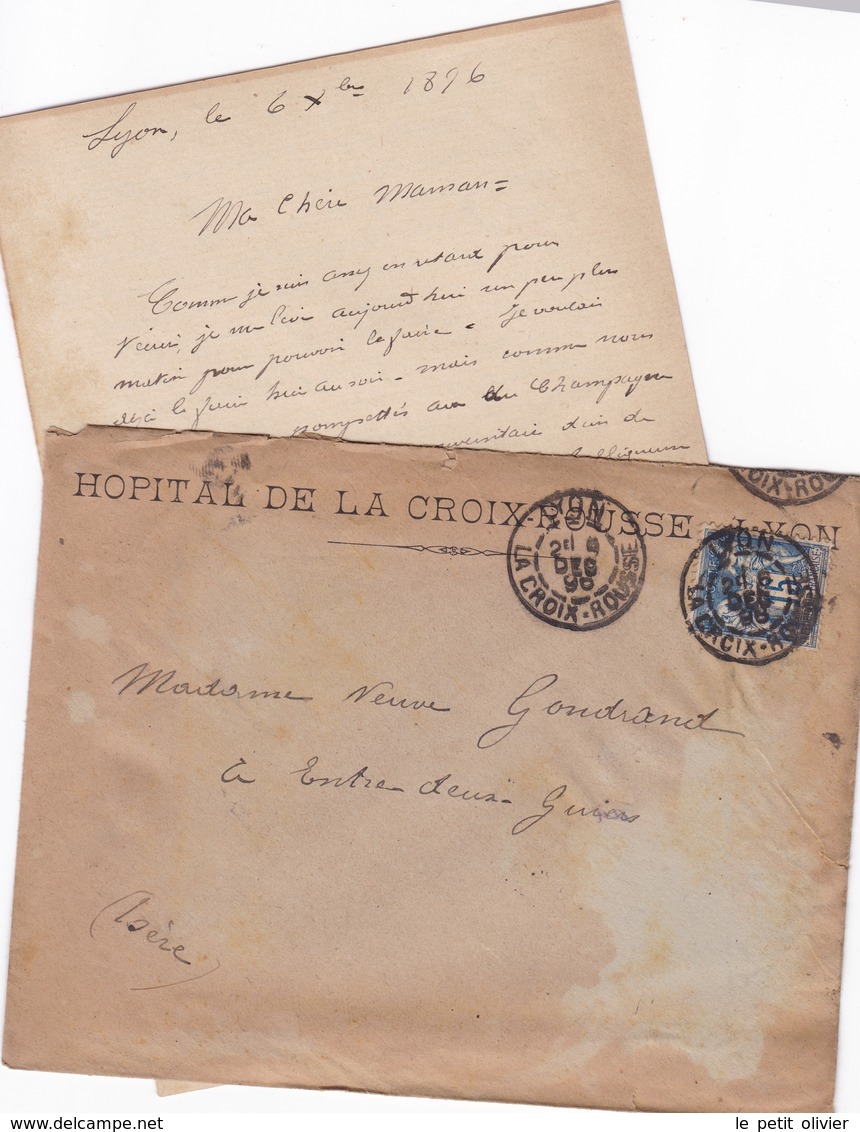 Lyon, le 6 Xbre 1896
Ma Chère Maman =
Comme je suis assez en retard pour
t'écrire, je me lève aujourd'hui un peu plus
matin pour pouvoir le faire = Je voulais
déjà le faire hier au soir - mais comme nous
pompettes avec du Champagne
HOPITAL DE LA CROIX-ROUSSE - LYON
LYON
2E 6
DEC
96
LA CROIX-ROUSSE
LYON
2E 6
DEC
96
LA CROIX-ROUSSE
15
Madame Veuve Gondrand
à Entre-deux-Guiers
(Isère)
le petit olivier